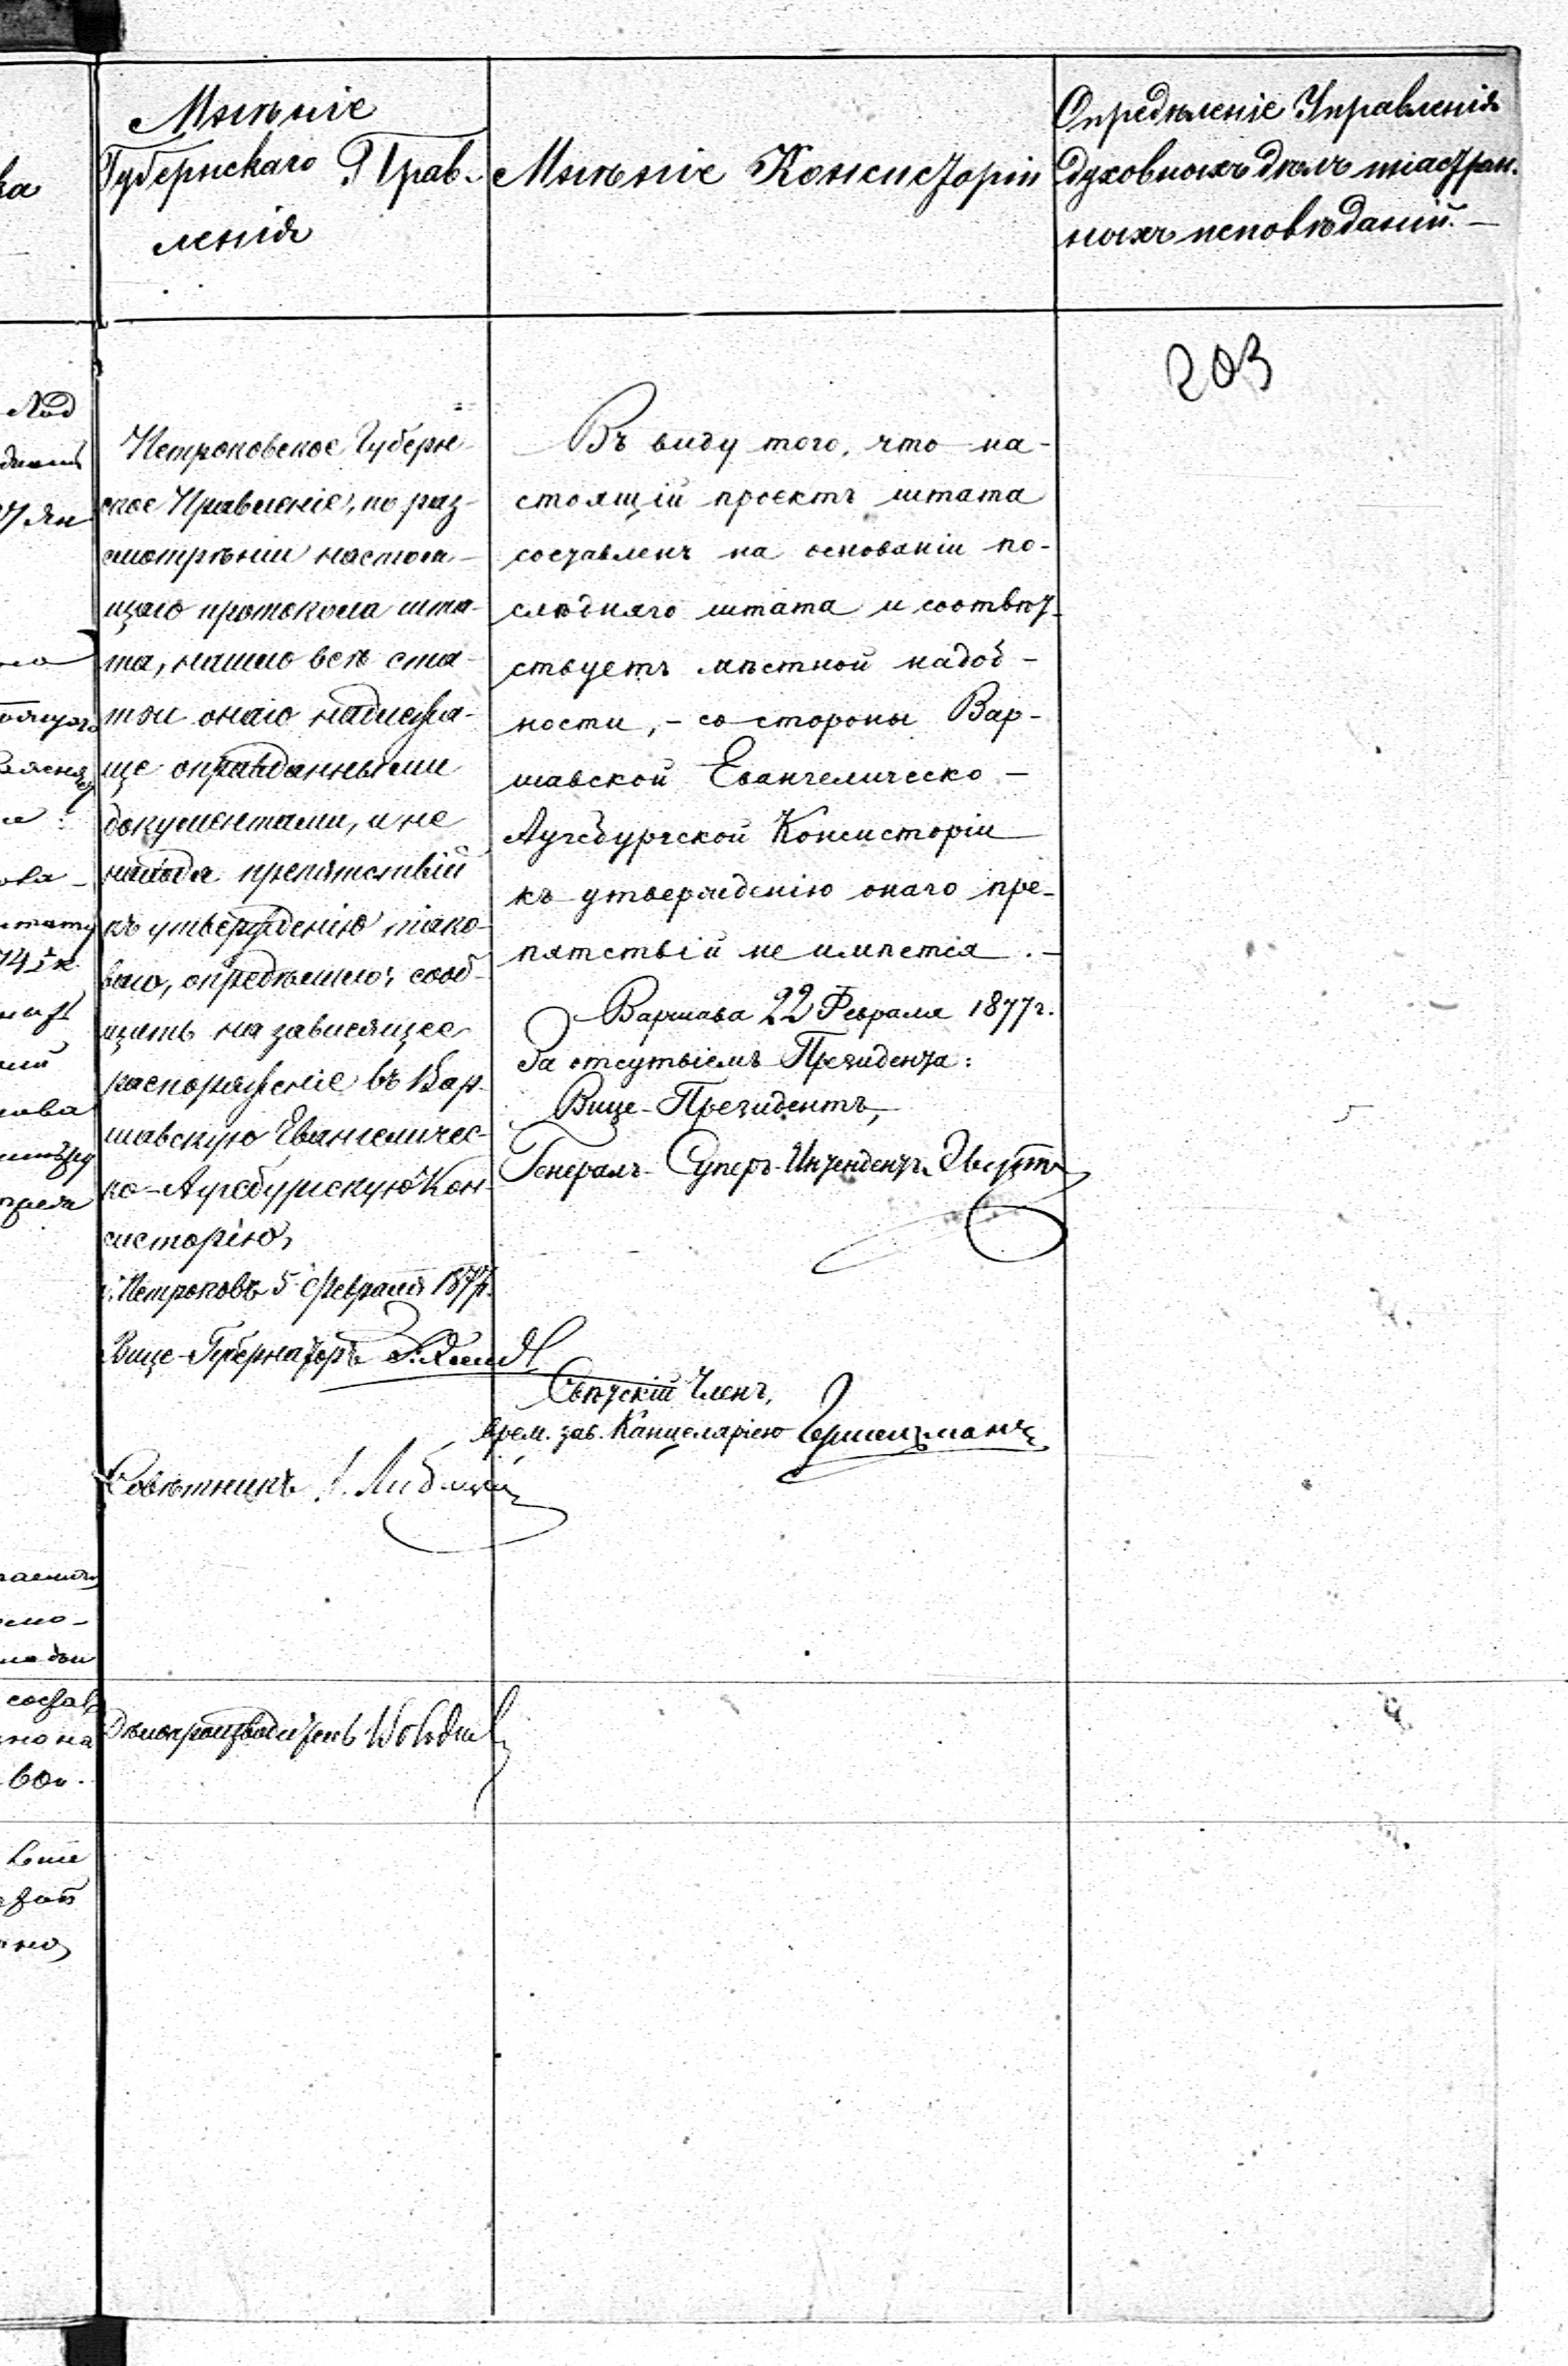 Мнѣніе
Губернскаго Прав-
ленія
Мнѣніе Консисторіи
Опредѣленіе Управленія
духовныхъ дѣлъ иностран-
ныхъ исповѣданій. —
203
Петроковское Губерн-
ское Правленіе, по раз-
смотрѣніи настоя-
щаго протокола шта-
та, нашло всѣ ста-
тьи онаго надлежа-
ще оправданными
документами, и не
находя препятствій
къ утвержденію тако-
ваго, опредѣлило: сооб-
щить на зависящее
распоряженіе въ Вар-
шавскую Евангеличес-
ко-Аугсбургскую Кон-
систорію,
г. Петроковъ 5 Февраля 1877 г.
Вице-Губернаторъ
Совѣтникъ
Дѣлопроизводитель
Въ виду того, что на-
стоящій проектъ штата
составленъ на основаніи по-
слѣдняго штата и соотвѣт-
ствуетъ мѣстной надоб-
ности, - со стороны Вар-
шавской Евангелическо-
Аугсбургской Консисторіи
къ утвержденію онаго пре-
пятствій не имѣется. -
Варшава 22 Февраля 1877 г.
За отсутвіемъ Президента:
Вице-Президентъ,
Генералъ-Суперъ-Интендентъ Эвертъ
Свѣтскій Членъ,
врем. зав. Канцеляріею